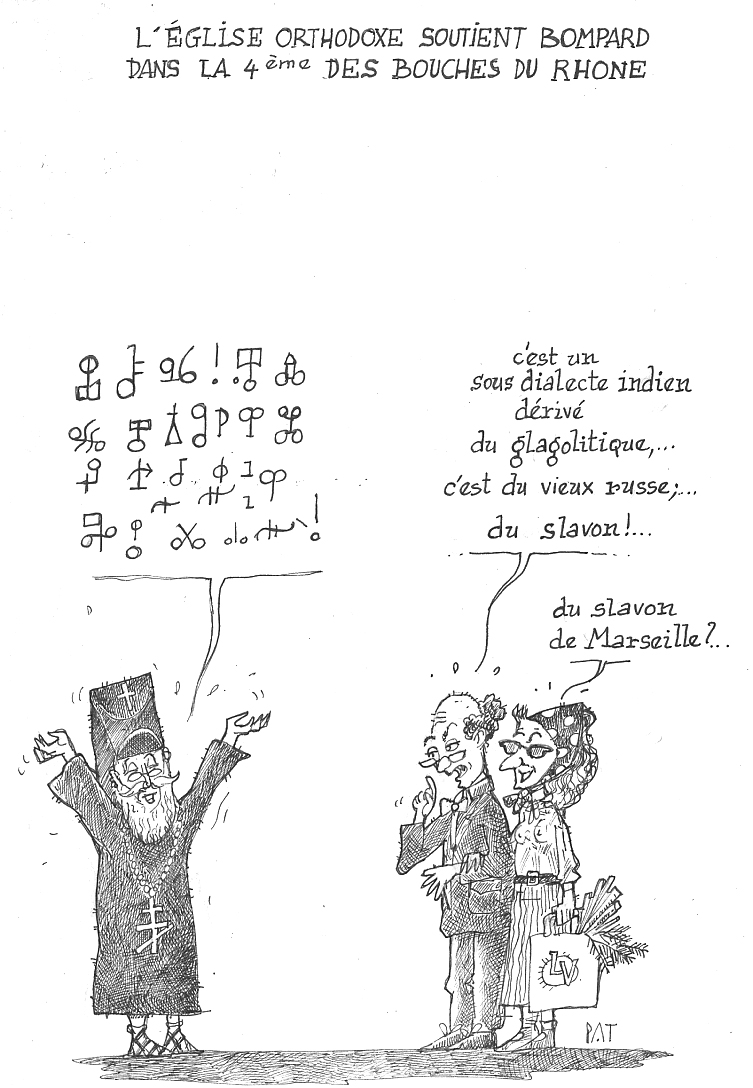 L'ÉGLISE ORTHODOXE SOUTIENT BOMPARD
DANS LA 4ème DES BOUCHES DU RHONE
c'est un
sous dialecte indien
dérivé
du glagolitique,...
c'est du vieux russe;...
du slavon!...
du slavon
de Marseille?...
LV
PAT